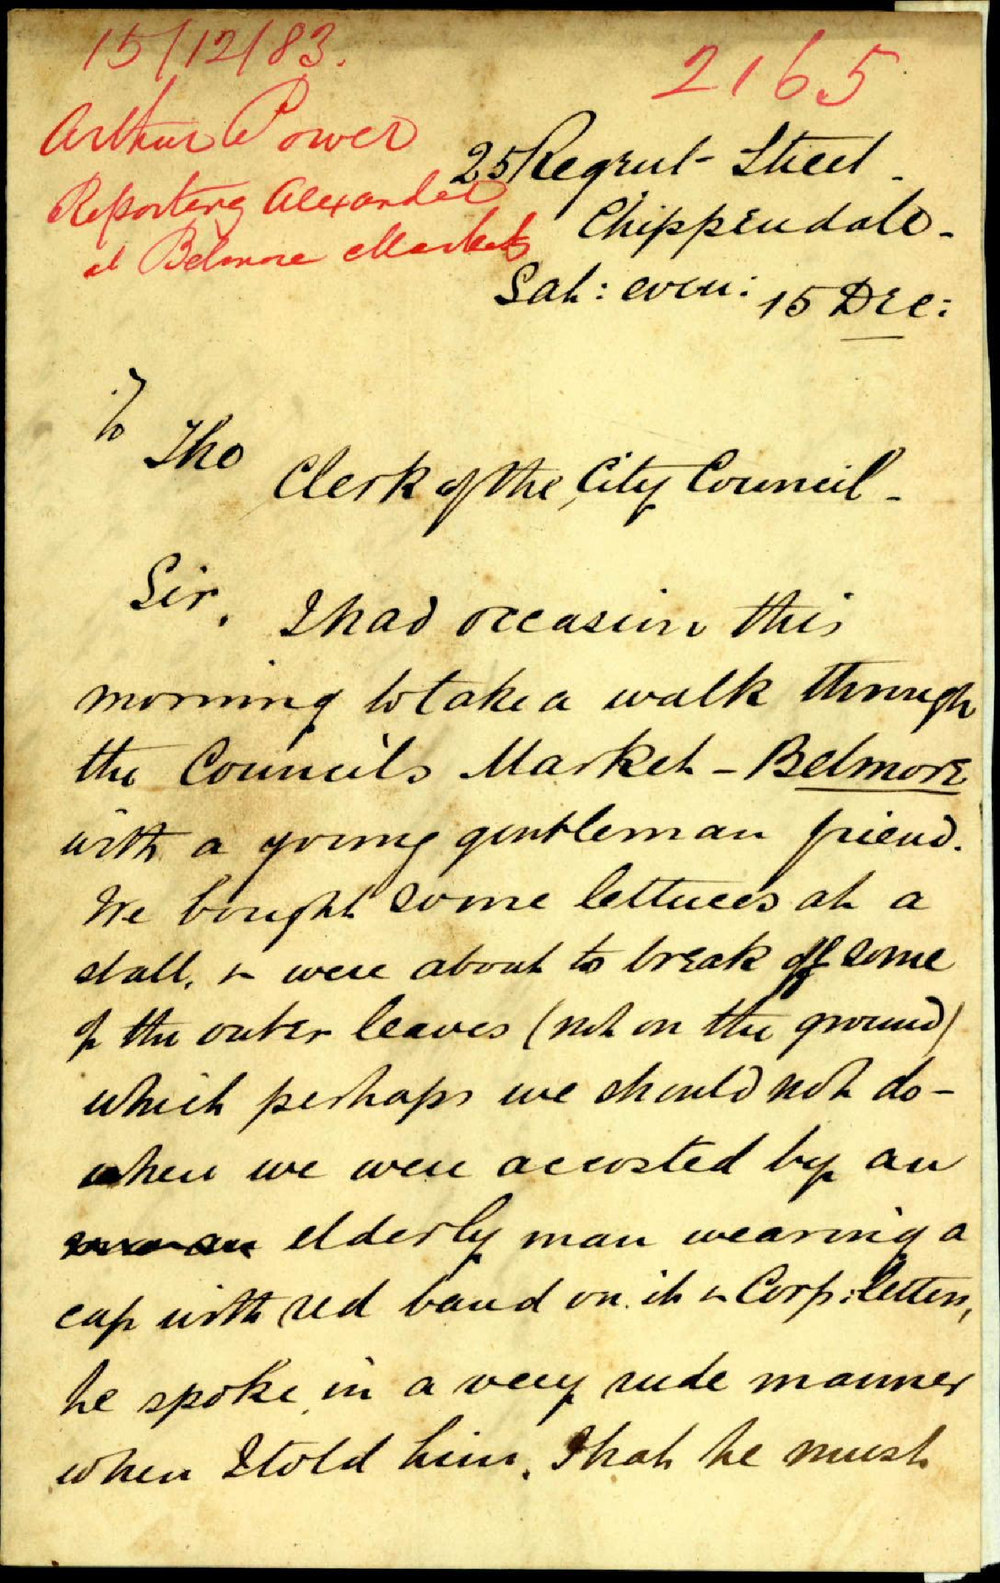 15/12/83.
2165
Arthur Power
Reporting Alexander
at Belmore Markets
25 Regent Street.
Chippendale -
Sat: even: 15 Dec:
To
The
Clerk of the City Council -
Sir, I had occasion this
morning to take a walk through
the Councils Market - Belmore
with a young gentleman friend.
We bought some lettuces at a
stall, & were about to break off some
of the outer leaves (not on the ground)
which perhaps we should not do -
when we were accosted by an
elderly man wearing a
cap with red band on it & Corp: letters,
he spoke in a very rude manner
when I told him, that he must